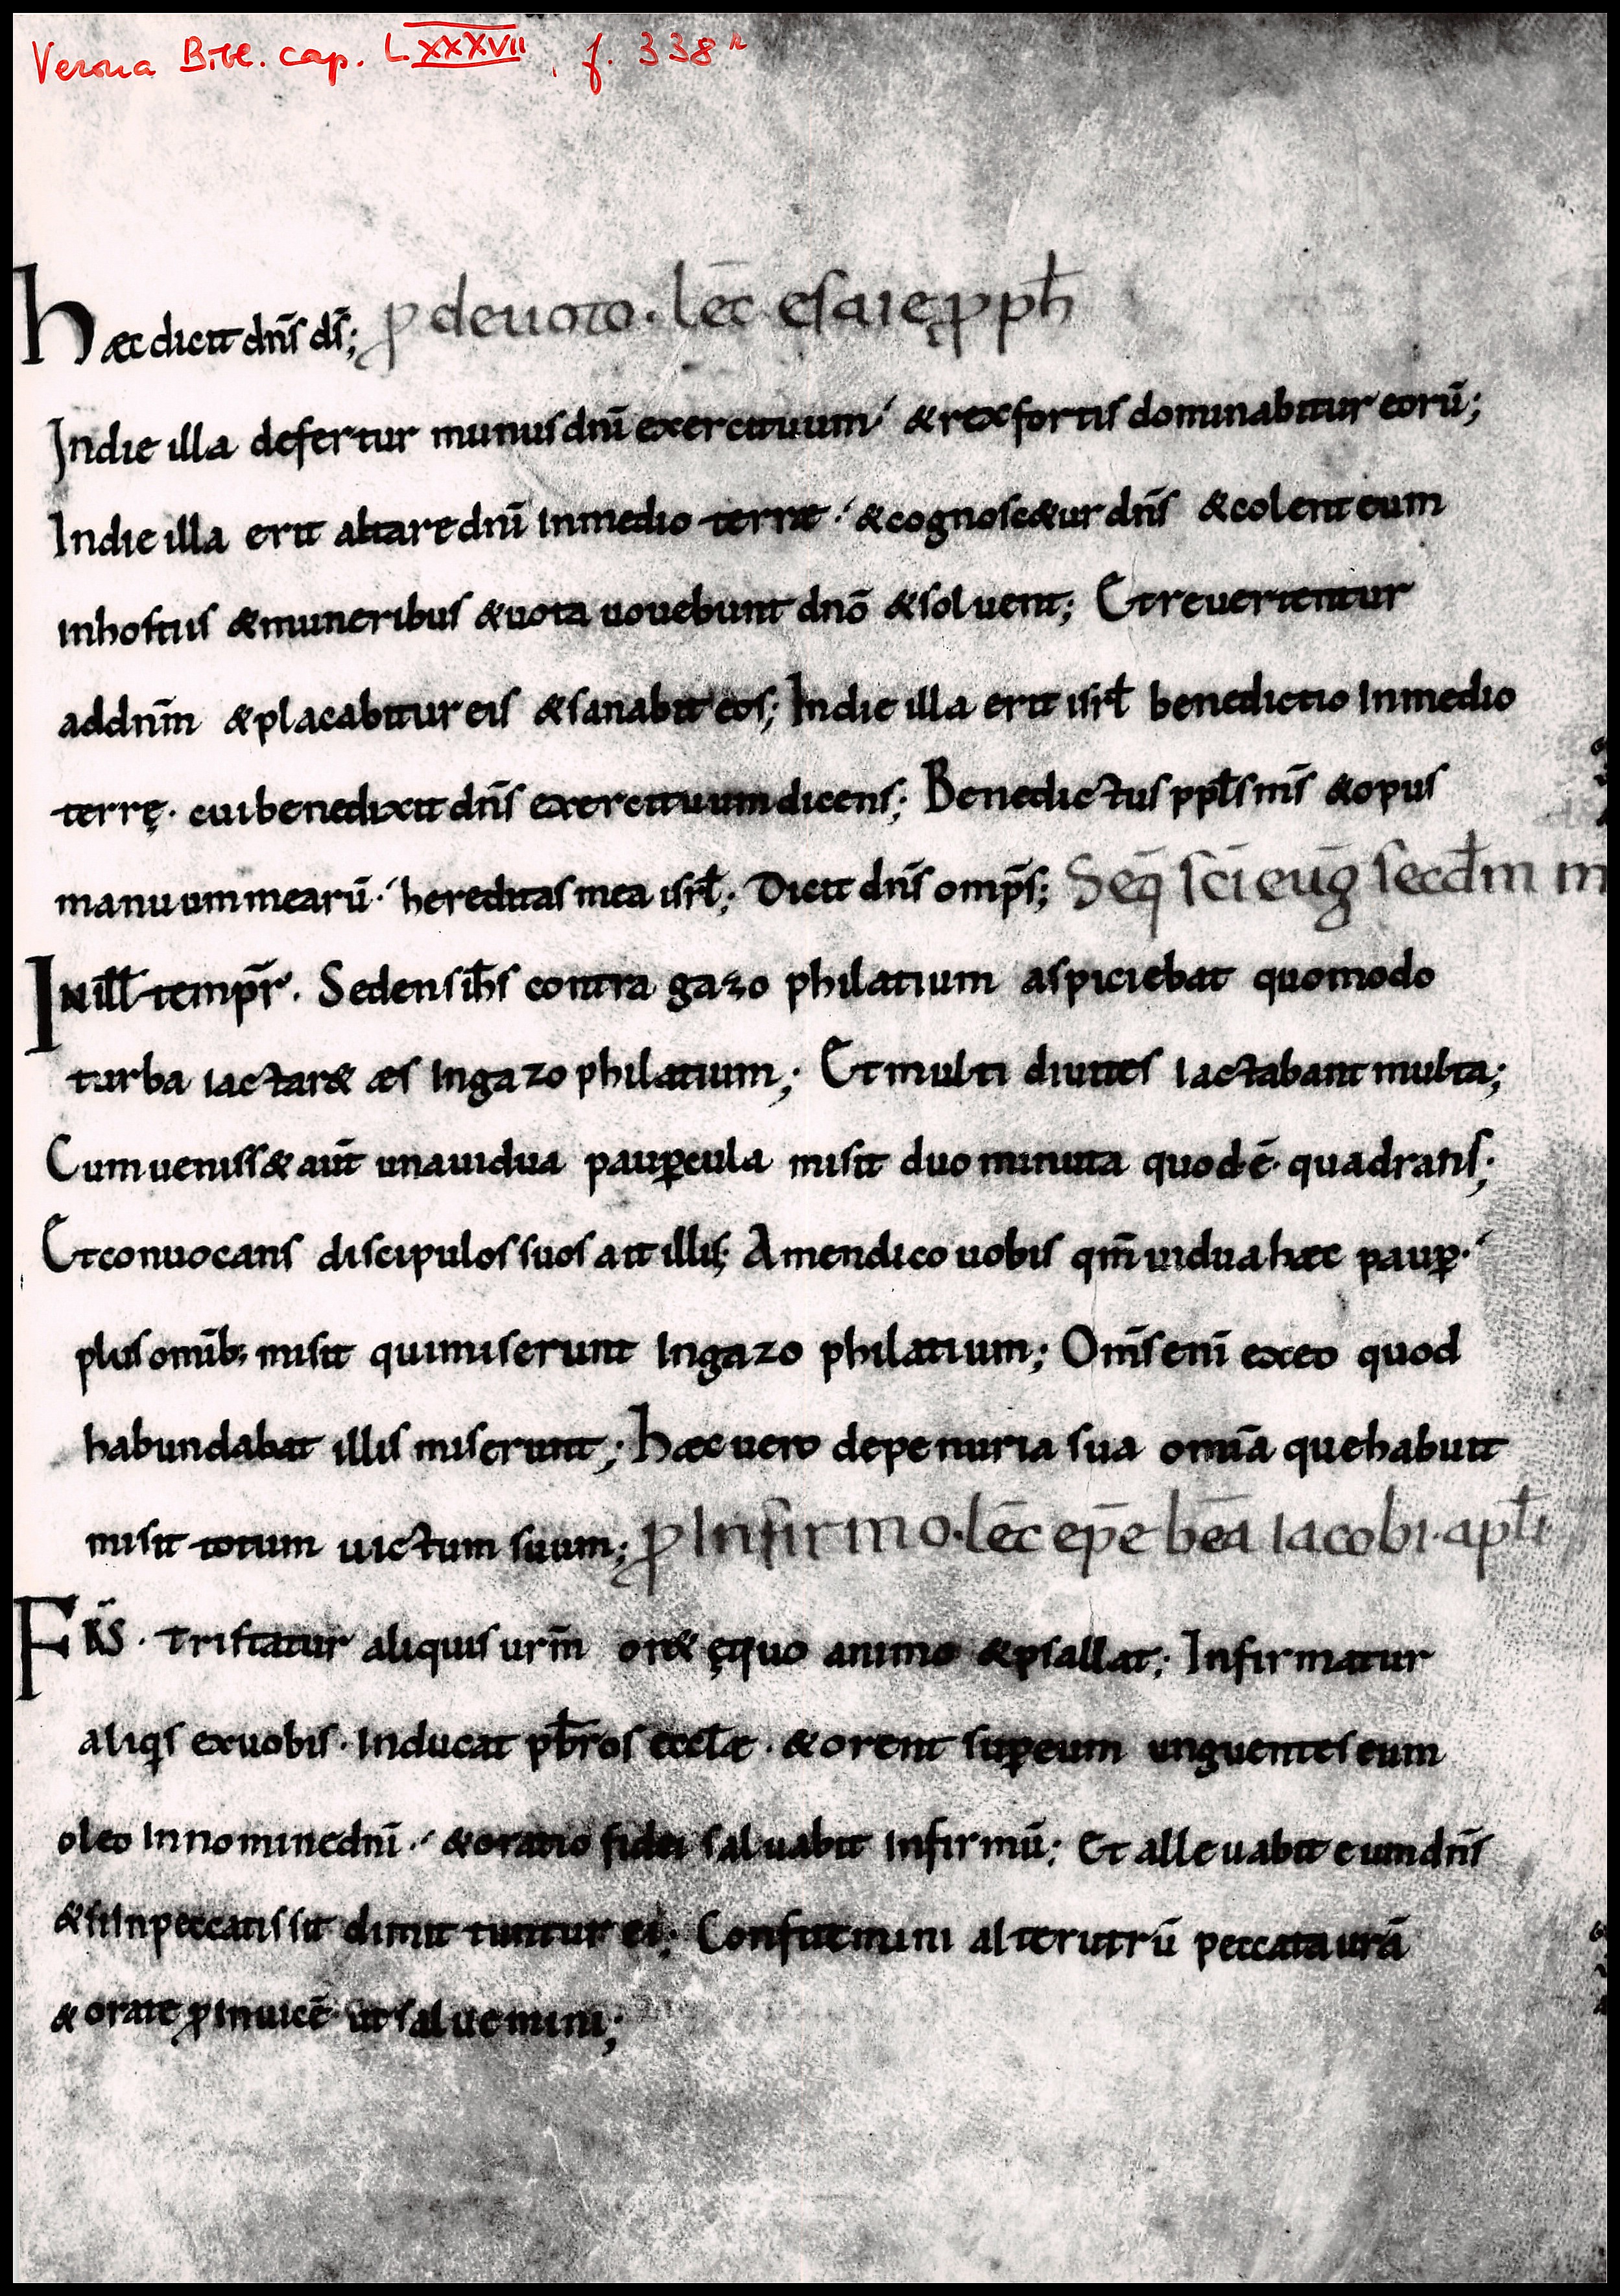 Verona Bibl. cap. LXXXVII, f. 338r
Haec dicit dn̄s ds̄; ꝓ deuoto. lec̄ esaię ꝓph
Indie illa defertur munus dnī exercituum &rex fortis dominabitur eorū;
Indie illa erit altare dnī inmedio terræ &cognosc&ur dn̄s &colent eum
inhostiis &muneribus &uota uouebunt dnō &soluent; Et reuertentur
addnm̄ &placabitur eis &sanabit eos; Indie illa erit isrł benedictio Inmedio
terrę. cui benedixit dn̄s exercituum dicens; Benedictus ppls̄ ms̄ &opus
manuum mearū. hereditas mea isrł; Dicit dn̄s omps̄; Seq̄ scī eug̅ secdm̄ m
IN ill̄ tempr̄. Sedens ih̄s contra gazophilatium aspiciebat quomodo
turba iactar& æs Ingazophilatium; Et multi diuites iactabant multa;
Cum ueniss& aut̄ una uidua pauꝑcula misit duo minuta quod ē quadrans;
Et conuocans discipulos suos ait illis; Amen dico uobis qm̄ uidua hæc pauꝑ.
plus omīb; misit qui miserunt Ingazophilatium; Oms̄ enī ex eo quod
habundabat illis miserunt; hæc uero de penuria sua omīa que habuit
misit totum uictum suum; ꝓ Infirmo. lec̄ epē bēa Iacobi apłi
FR̄S. Tristatur aliquis urm̄ or& ęquo animo &psallat; Infirmatur
aliq̄s ex uobis. Inducat pb̄ros eccłæ. &orent suꝑ eum unguentes eum
oleo In nomine dnī. &oratio fidei saluabit Infirmū; Et alleuabit eum dn̄s
&si In peccatis sit dimittuntur ei; Confitemini alterutrū peccata urā
&orate ꝓ inuicē ut saluemini;